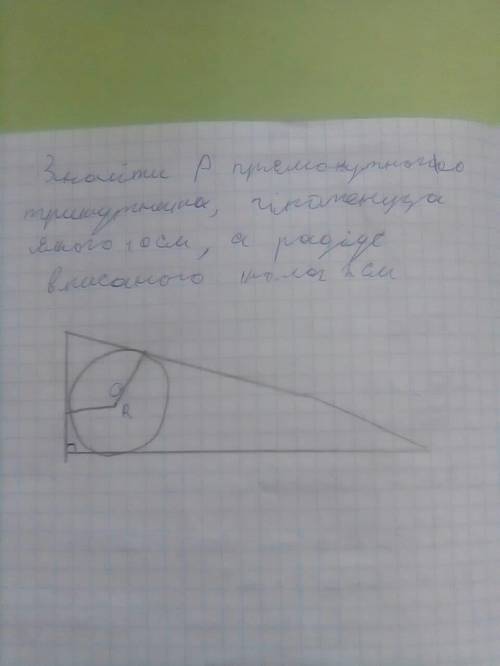 Знайти P прямокутного
трикутника, гіпотенуза
якого 10см, а радіус
вписаного кола см
O
R